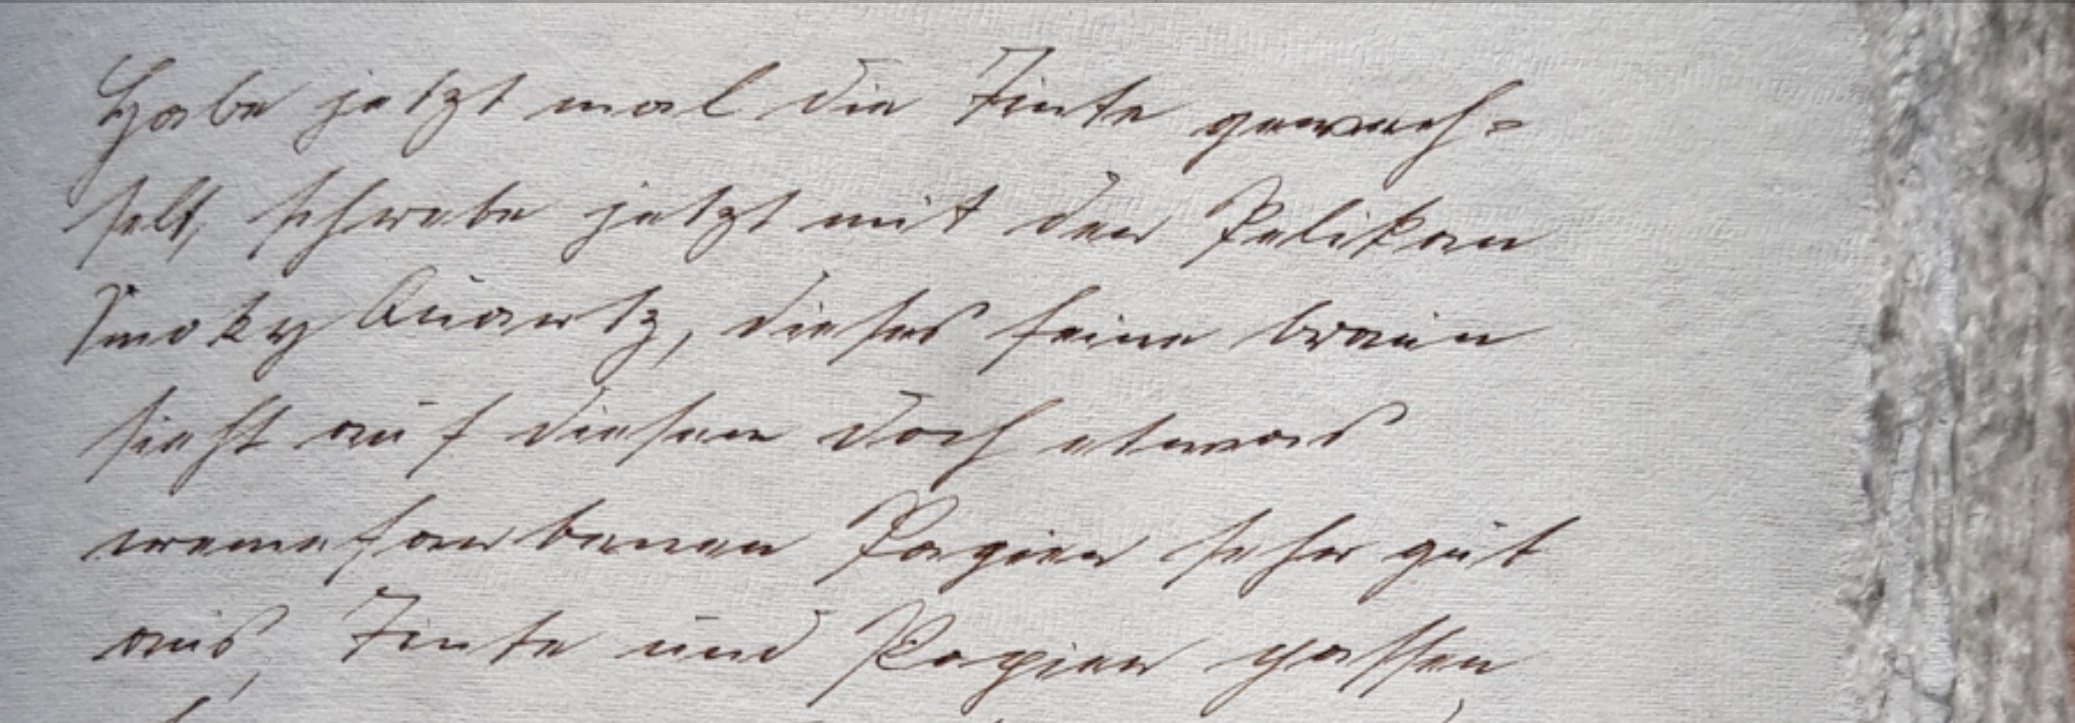 Habe jetzt mal die Tinte gewech=
selt, schrebe jetzt mit der Pelikan
Smoky Quartz, dieses feine braun
sieht auf diesem doch etwas
cremefarbenen Papier sehr gut
aus, Tinte und Papier passen